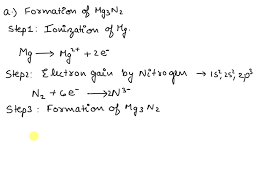 a.) Formation of Mg3N2
Step1: Ionization of Mg.
Mg ⟶ Mg²⁺ + 2e⁻
Step2: Electron gain by Nitrogen → 1s², 2s², 2p³
N₂ + 6e⁻ ⟶ 2N³⁻
Step3: Formation of Mg3N2